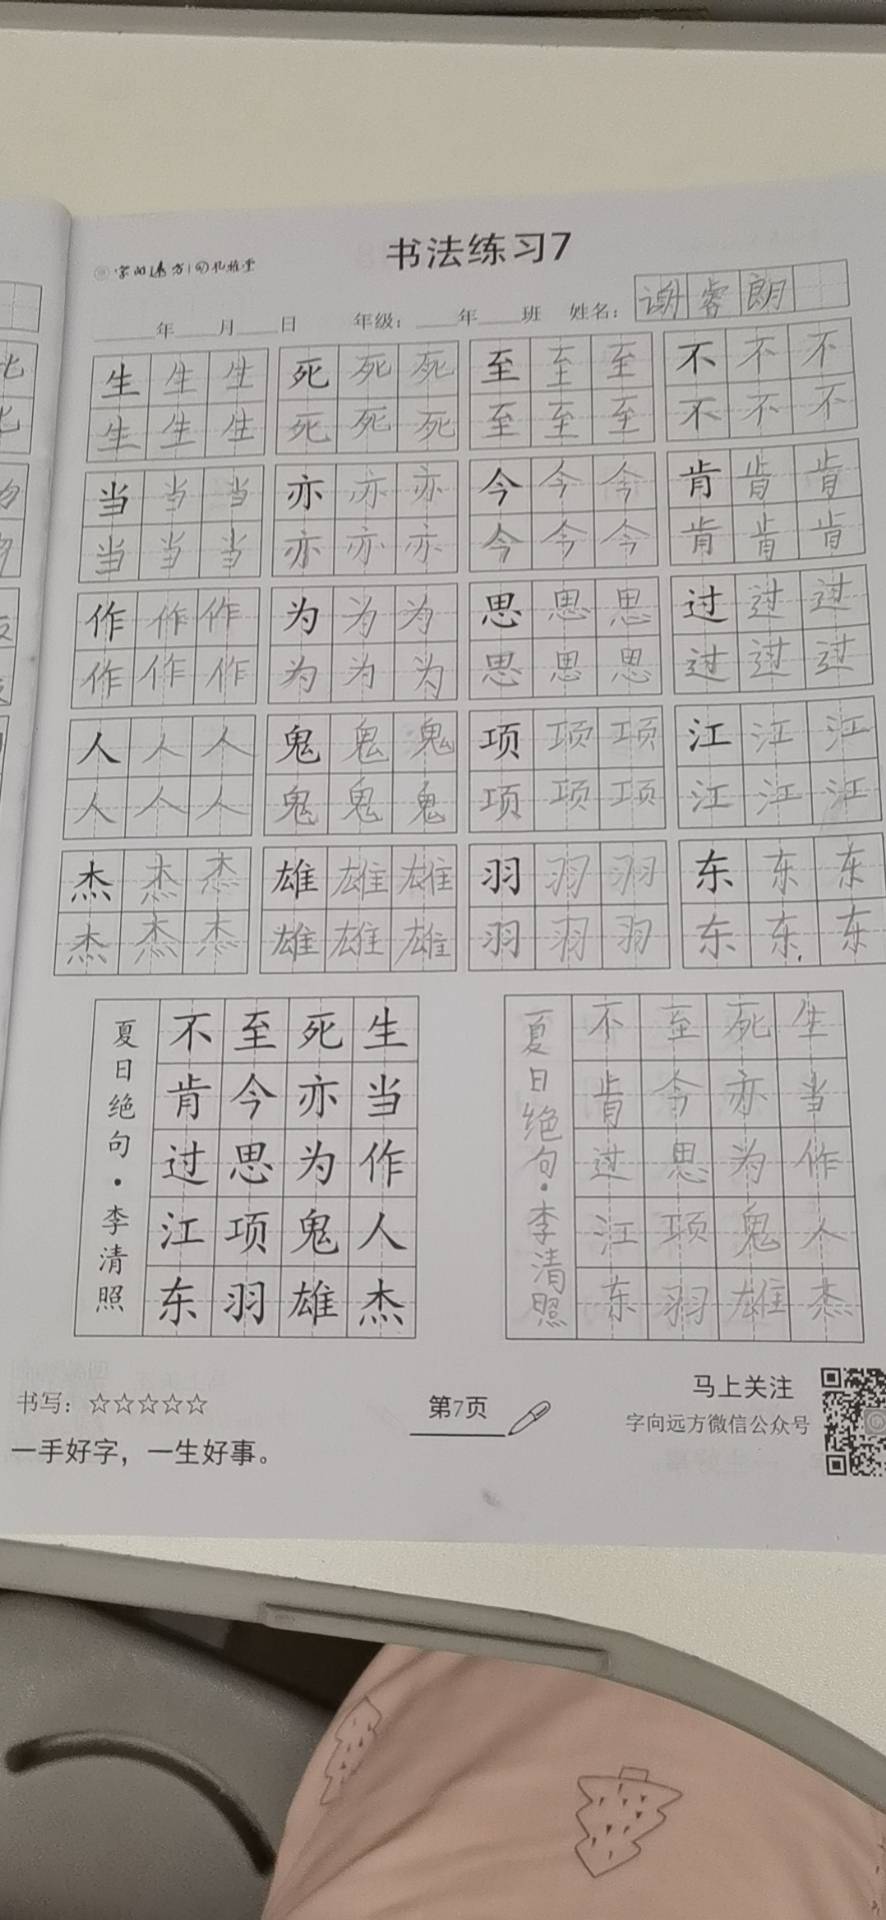 书法练习7
年 月 日 年级： 年 班 姓名： 谢睿朗
生 生 生 死 死 死 至 至 至 不 不 不
生 生 生 死 死 死 至 至 至 不 不 不
当 当 当 亦 亦 亦 今 今 今 肯 肯 肯
当 当 当 亦 亦 亦 今 今 今 肯 肯 肯
作 作 作 为 为 为 思 思 思 过 过 过
作 作 作 为 为 为 思 思 思 过 过 过
人 人 人 鬼 鬼 鬼 项 项 项 江 江 江
人 人 人 鬼 鬼 鬼 项 项 项 江 江 江
杰 杰 杰 雄 雄 雄 羽 羽 羽 东 东 东
杰 杰 杰 雄 雄 雄 羽 羽 羽 东 东 东
生当作人杰
死亦为鬼雄
至今思项羽
不肯过江东
夏日绝句·李清照
生当作人杰
死亦为鬼雄
至今思项羽
不肯过江东
夏日绝句·李清照
书写：☆☆☆☆☆
一手好字，一生好事。
第7页
马上关注
字向远方微信公众号